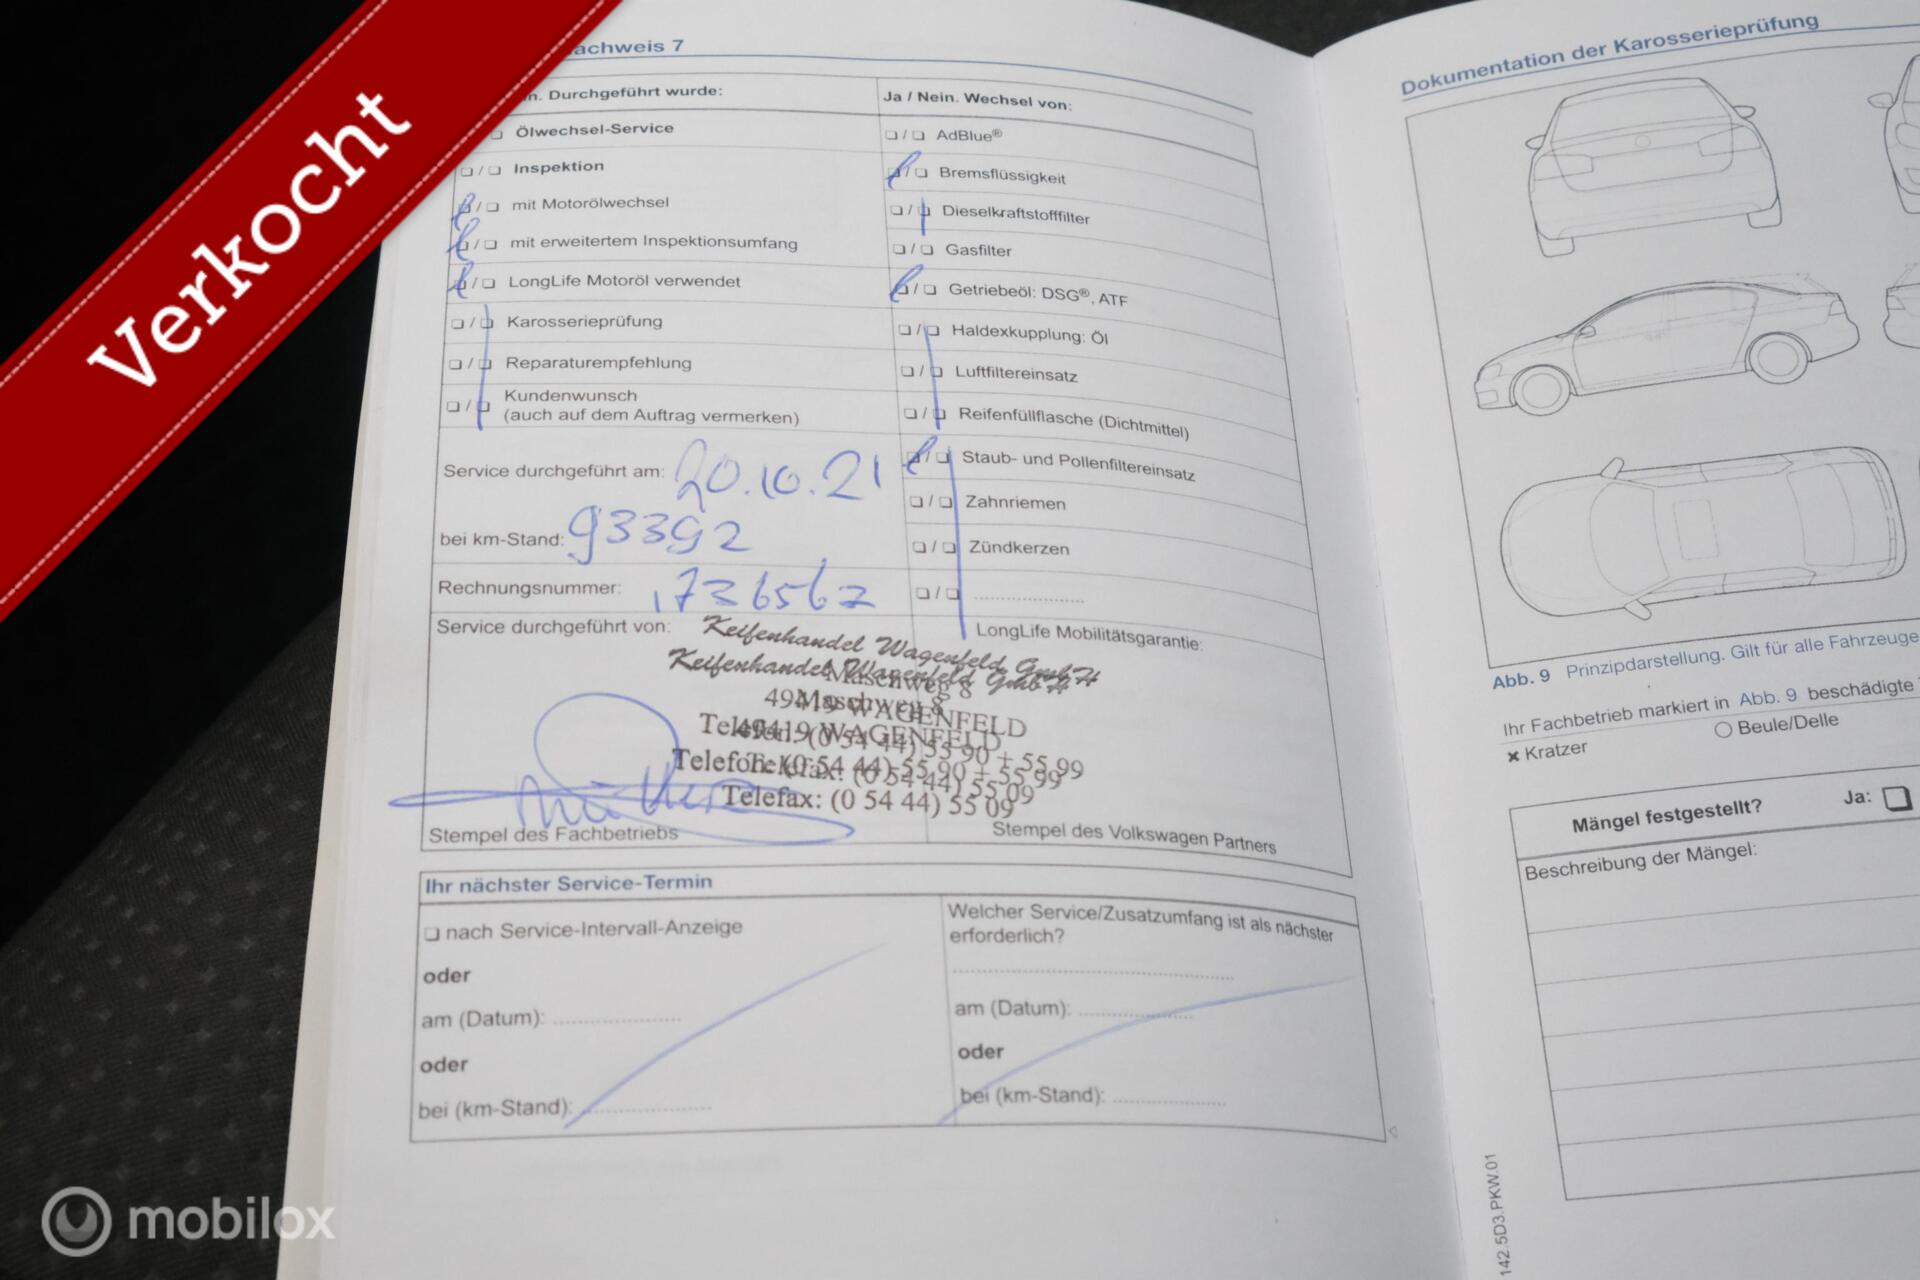 Verkocht
achweis 7
n. Durchgeführt wurde:
Ölwechsel-Service
Inspektion
mit Motorölwechsel
mit erweitertem Inspektionsumfang
LongLife Motoröl verwendet
Karosserieprüfung
Reparaturempfehlung
Kundenwunsch
(auch auf dem Auftrag vermerken)
Ja / Nein. Wechsel von:
AdBlue®
Bremsflüssigkeit
Dieselkraftstofffilter
Gasfilter
Getriebeöl: DSG®, ATF
Haldexkupplung: Öl
Luftfiltereinsatz
Reifenfüllflasche (Dichtmittel)
Staub- und Pollenfiltereinsatz
Zahnriemen
Zündkerzen
Service durchgeführt am: 20.10.21
bei km-Stand: 93392
Rechnungsnummer: 1736567
Service durchgeführt von:
LongLife Mobilitätsgarantie:
Reifenhandel Wagenfeld GmbH
Reifenhandel Wagenfeld GmbH
Maschweg 8
Maschweg 8
49419 WAGENFELD
49419 WAGENFELD
Telefon: (0 54 44) 55 90 + 55 99
Telefon: (0 54 44) 55 90 + 55 99
Telefax: (0 54 44) 55 09
Telefax: (0 54 44) 55 09
Stempel des Fachbetriebs
Stempel des Volkswagen Partners
Ihr nächster Service-Termin
nach Service-Intervall-Anzeige
oder
am (Datum):
oder
bei (km-Stand):
Welcher Service/Zusatzumfang ist als nächster
erforderlich?
am (Datum):
oder
bei (km-Stand):
Dokumentation der Karosserieprüfung
Abb. 9 Prinzipdarstellung. Gilt für alle Fahrzeuge
Ihr Fachbetrieb markiert in Abb. 9 beschädigte
Kratzer
Beule/Delle
Mängel festgestellt? Ja:
Beschreibung der Mängel:
142.5D3.PKW.01
mobilox